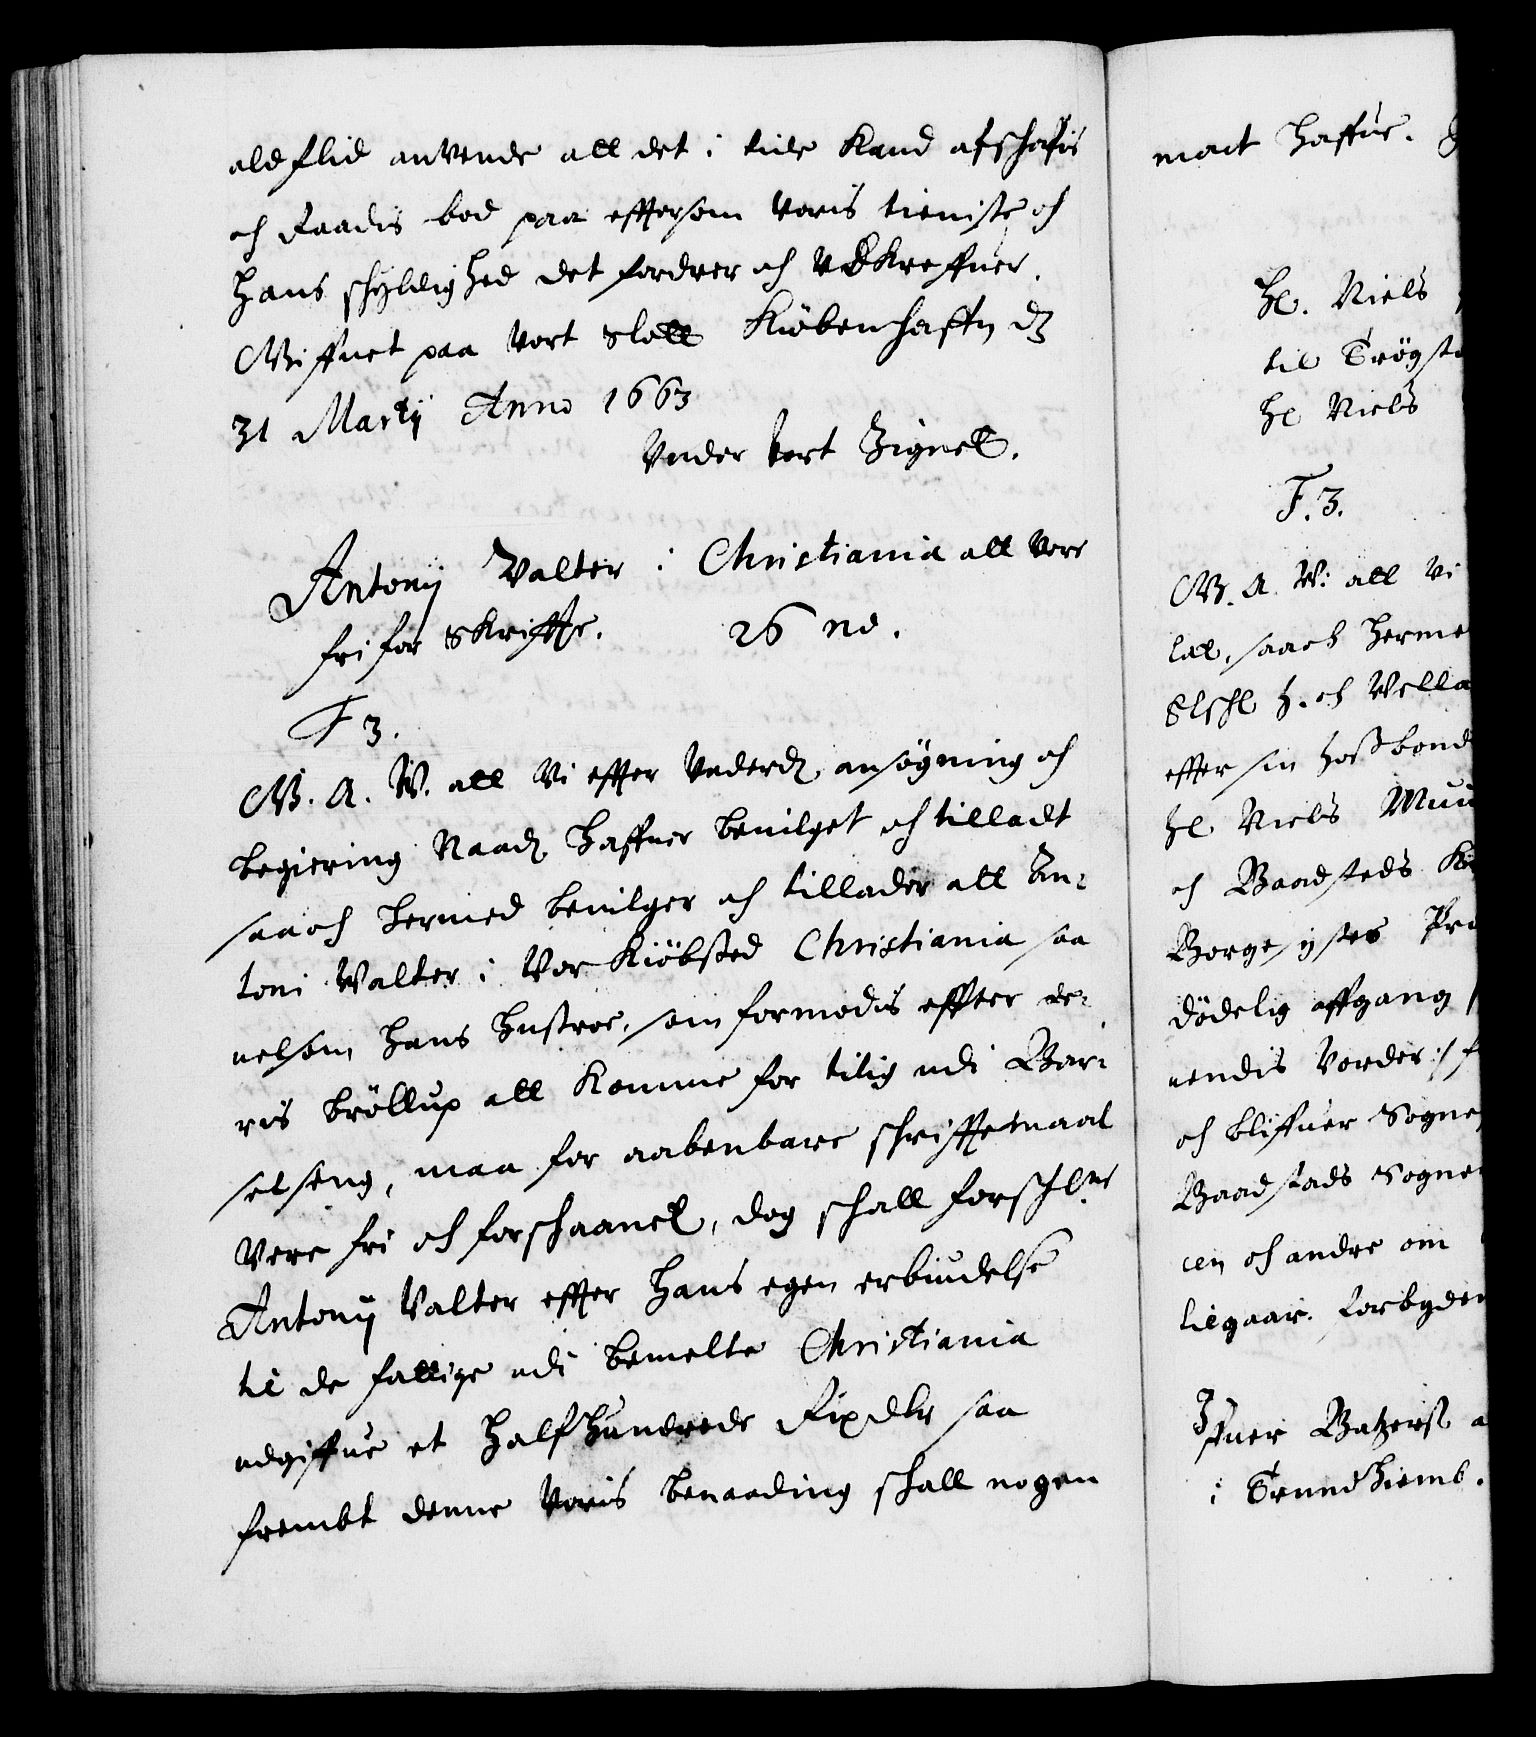 all flid anvende att det i tide kand afschafis
och Raadis bod paa effersom voris tieniste och
hans schyldighed det fordrer och vdkreffuer.
Giffuet paa vort Slott Kiøbenhaffn dj
31 Martij Anno 1663
Vnder vort Zignet.
Antonij Valter i Christiania att vere
fri for Skriffte. 26 nd.
F 3.
G. A. W. att Vi effter vnderd. ansøgning och
begiering Naad. haffuer beuilget och tilladt
saa och hermed beuilger och tillader att An-
toni Walter i Vor Kiøbsted Christiania saa
uelsom hans hustroe, som formodis effter de-
ris brøllup att komme for tilig udi Bar-
selseng, maa for aabenbare schrifftemaal
vere fri och forschaanet, dog schall forschne
Antonij Valter effter hans egen erbiudelse
til de fattige udi bemelte Christiania
udgiffue et halfhundrede Rixdlr saa
frembt denne voris benaading schall nogen
mact haffue.
Hr. Niels
til Trøgst
Hr Niels
F. 3.
G. A. W: att Vi
lat, saa och herme
Elschl h. och Vella
effter sin hossbond
hr Niels Muu
och Baadsteds Ki
Borgesyssels Pro
dødelig affgang
uendis vorder :/ f
och bliffuer Sogne
Baadstads Sogne
cen och andre om
tilgaar. Forbyden
Iffuer Batzerst a
i Trundhiemb.